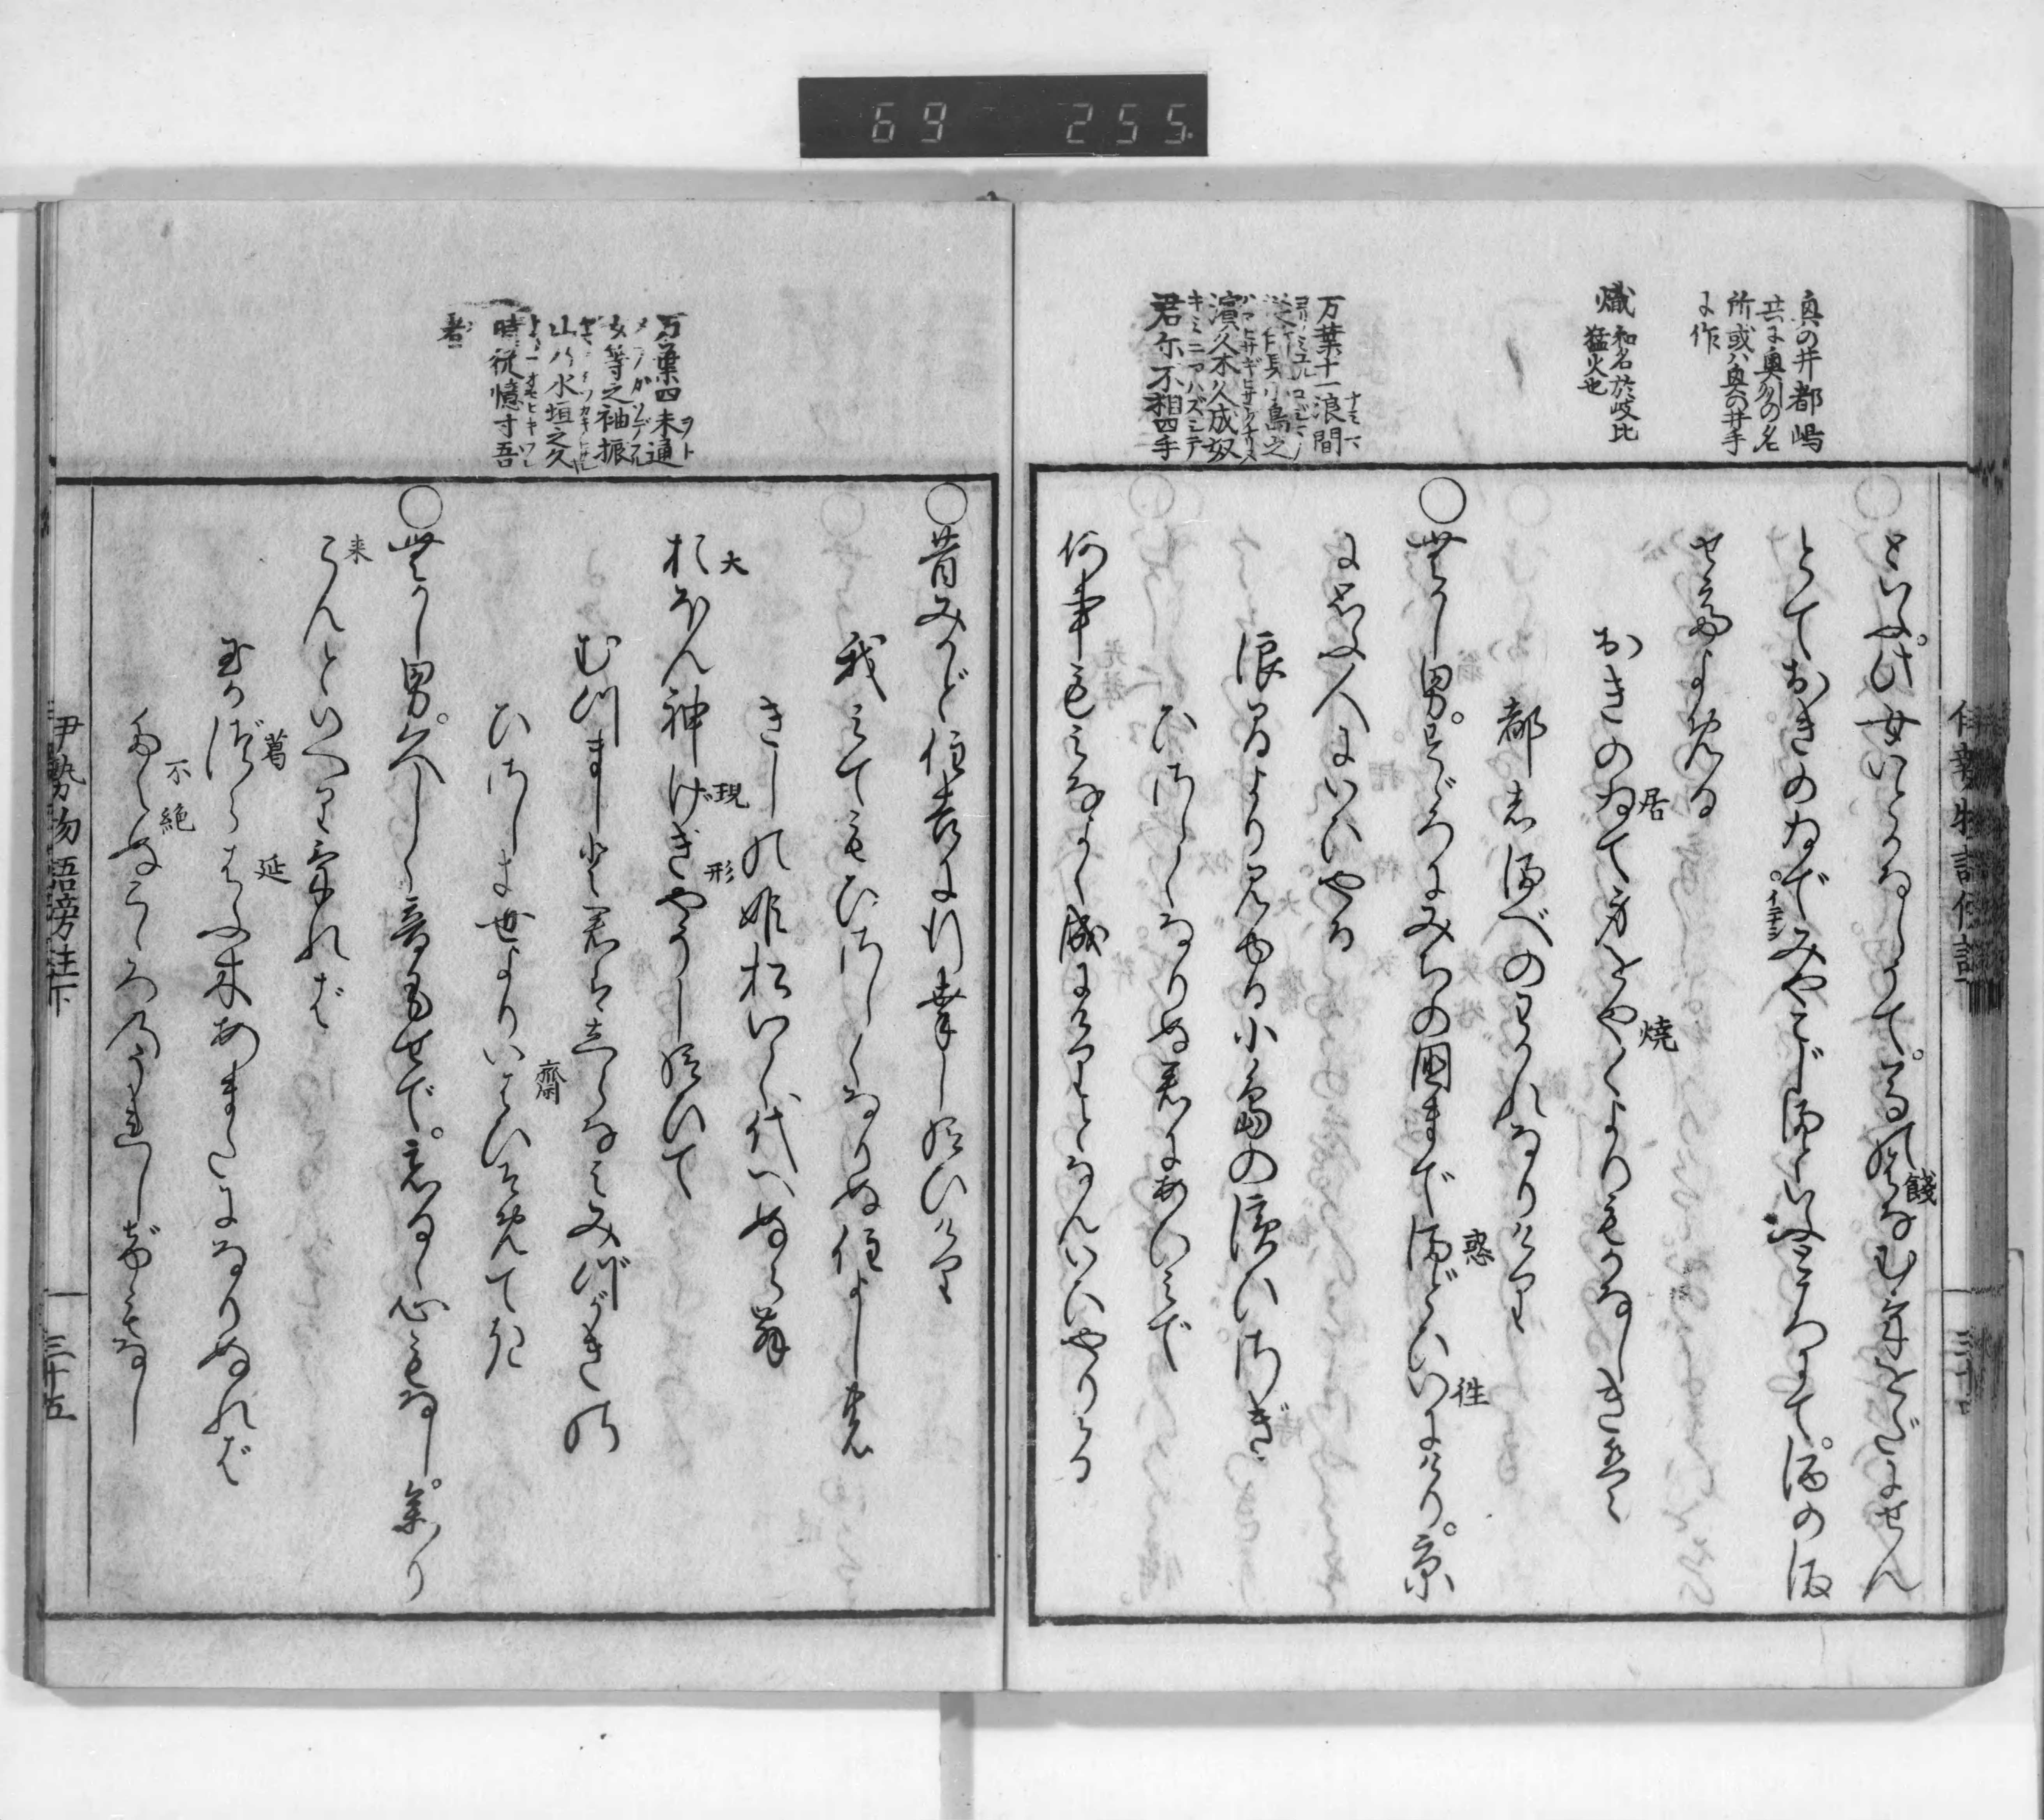 69 255
真の井都嶋
共に奥州の名
所或ハ奥の井手
に作
熾 和名於岐比
猛火也
万葉十一浪間
従所見小島之
濱久木久成奴
君尓不相四手
といふ。此女いとかなしうて。うまの餞
はなむけをだにせん
とておきのゐでみやこじまといふところにて。酒の
ませてよめる
おきのゐて居身をやく焼よりもかなしきは
都しまべのわかれなりけり
むかし男。すゞろにみちの国までまどひ惑いに往けり。京
に思ふ人にいひやる
浪まより見ゆる小島の濱ひさぎ
ひさしくなりぬ君にあひみで
何事もみなよく成にけりとなんいひやりける
万葉四未通
女等之袖振
山乃水垣之久
時従憶寸吾
者
昔みかど住吉に行幸し給ひけり
我みてもひさしくなりぬ住よしの
きしの姫松いく代へぬらん
大
おほん神げぎやうし給ひて
現 形
むつまじと君はしらなみみづがきの
ひさしき世よりいはひそめてき
齋
むかし男。久しく音もせで。わするゝ心もなし。参り
こんといへりければ
来
玉かづらはふ木あまたになりぬれば
葛 延
たえぬこゝろのうれしげもなし
不絶
伊勢物語傍注下
三十五